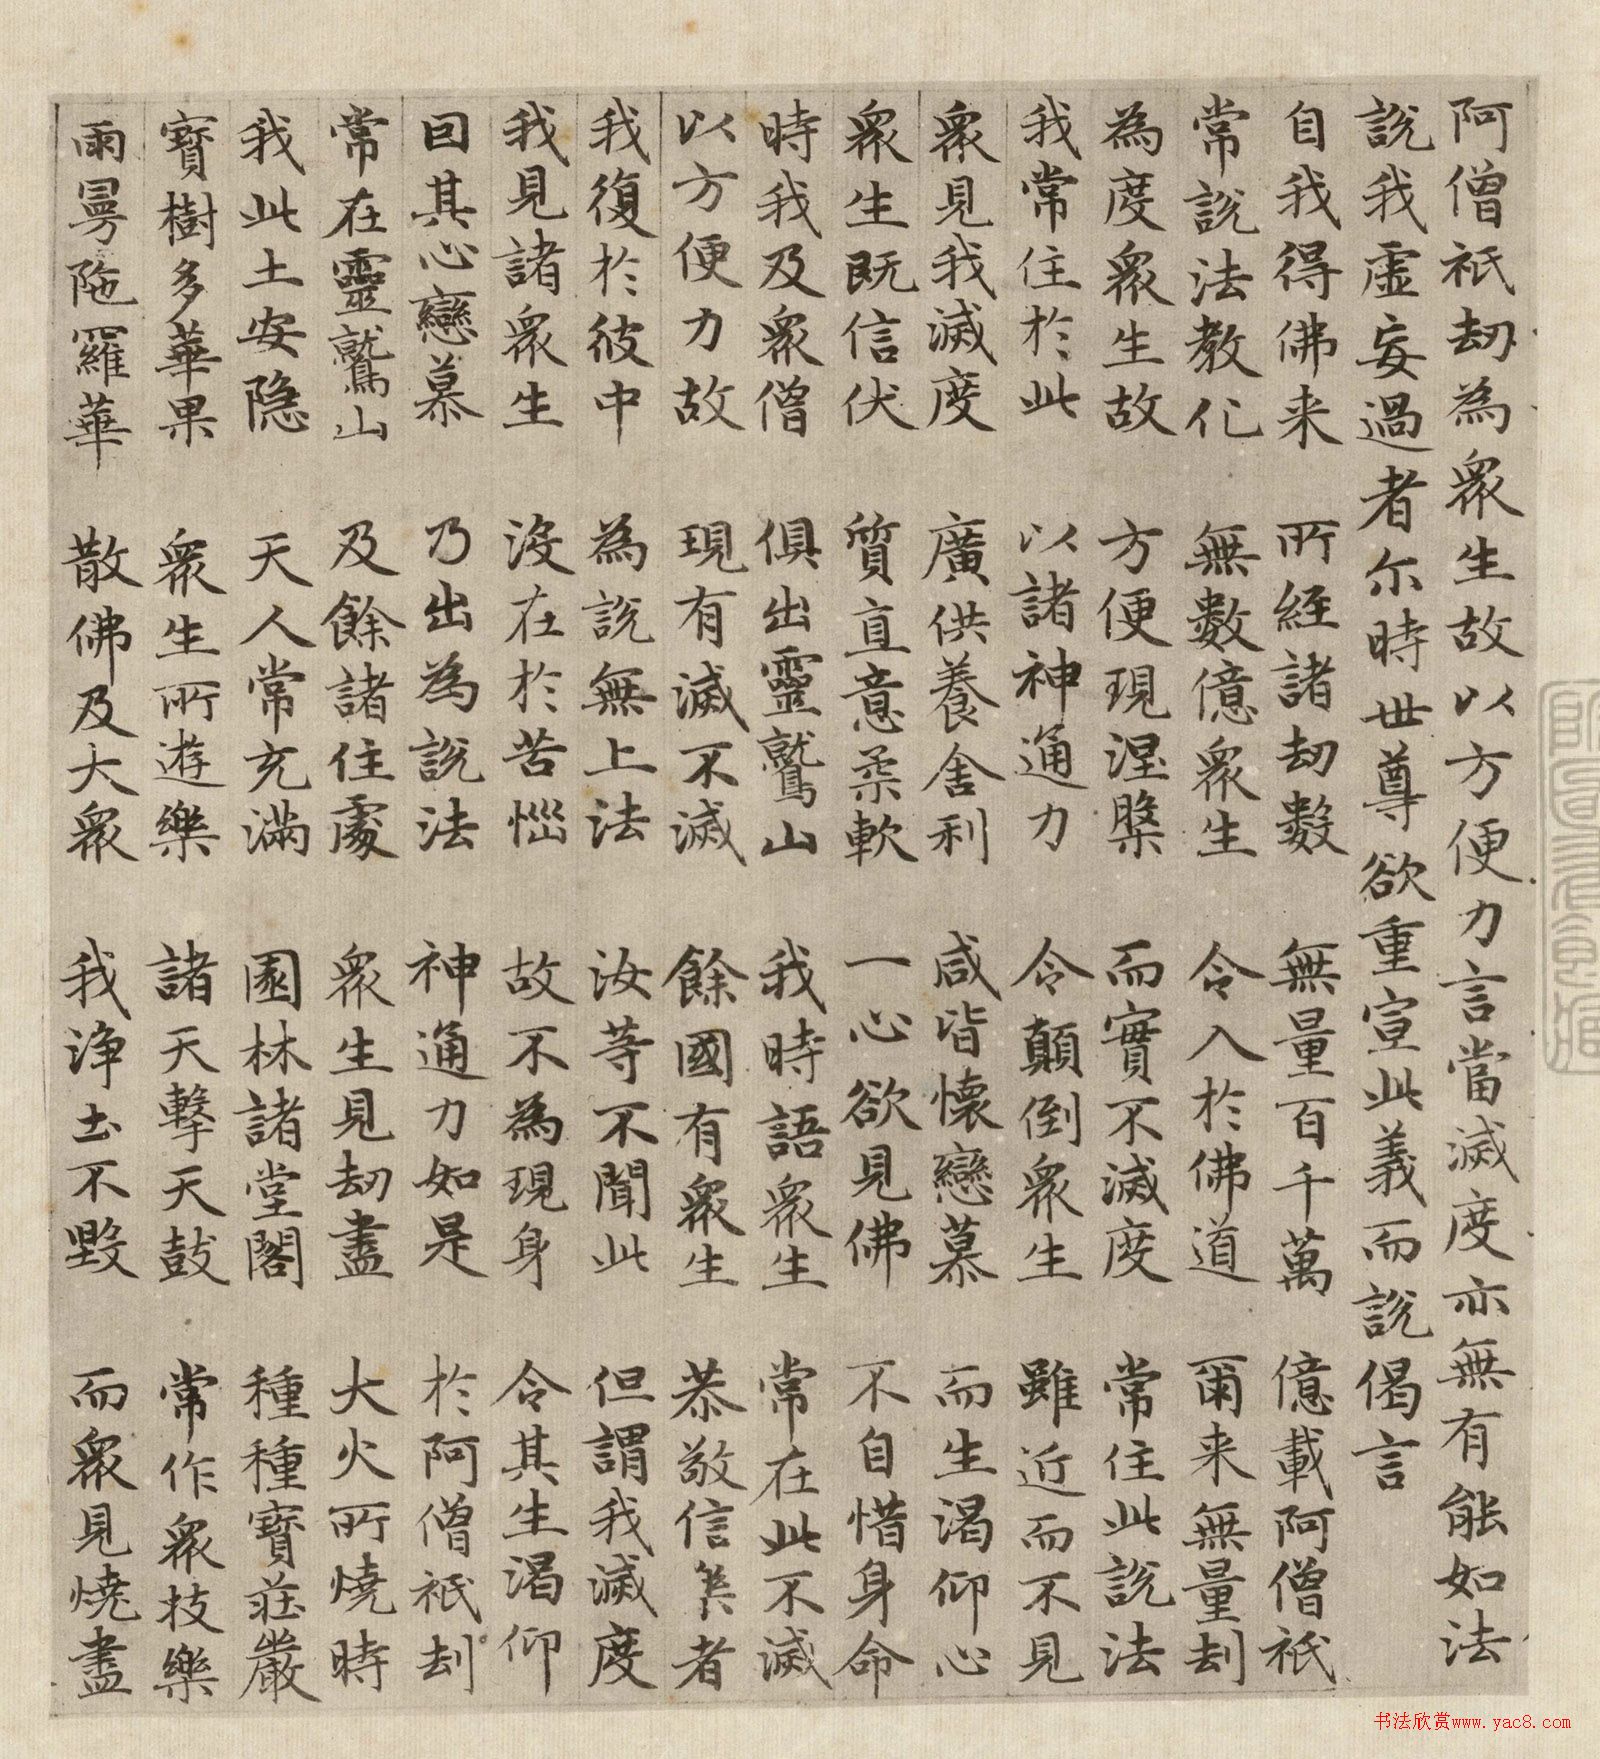 阿僧祇劫為衆生故以方便力言當滅度亦無有能如法
說我虛妄過者尔時世尊欲重宣此義而說偈言
自我得佛来 所經諸劫數 無量百千萬 億載阿僧祇
常說法教化 無數億衆生 令入於佛道 爾来無量劫
為度衆生故 方便現涅槃 而實不滅度 常住此說法
我常住於此 以諸神通力 令顛倒衆生 雖近而不見
衆見我滅度 廣供養舍利 咸皆懷戀慕 而生渴仰心
衆生既信伏 質直意柔軟 一心欲見佛 不自惜身命
時我及衆僧 俱出靈鷲山 我時語衆生 常在此不滅
以方便力故 現有滅不滅 餘國有衆生 恭敬信者
我復於彼中 為說無上法 汝等不聞此 但謂我滅度
我見諸衆生 没在於苦惱 故不為現身 令其生渴仰
回其心戀慕 乃出為說法 神通力如是 於阿僧祇劫
常在靈鷲山 及餘諸住處 衆生見劫盡 大火所燒時
我此土安隐 天人常充滿 園林諸堂閣 種種寶莊嚴
寶樹多華果 衆生所遊樂 諸天擊天鼓 常作衆技樂
雨曼陁羅華 散佛及大衆 我淨土不毀 而衆見燒盡
书法欣赏www.yac8.com